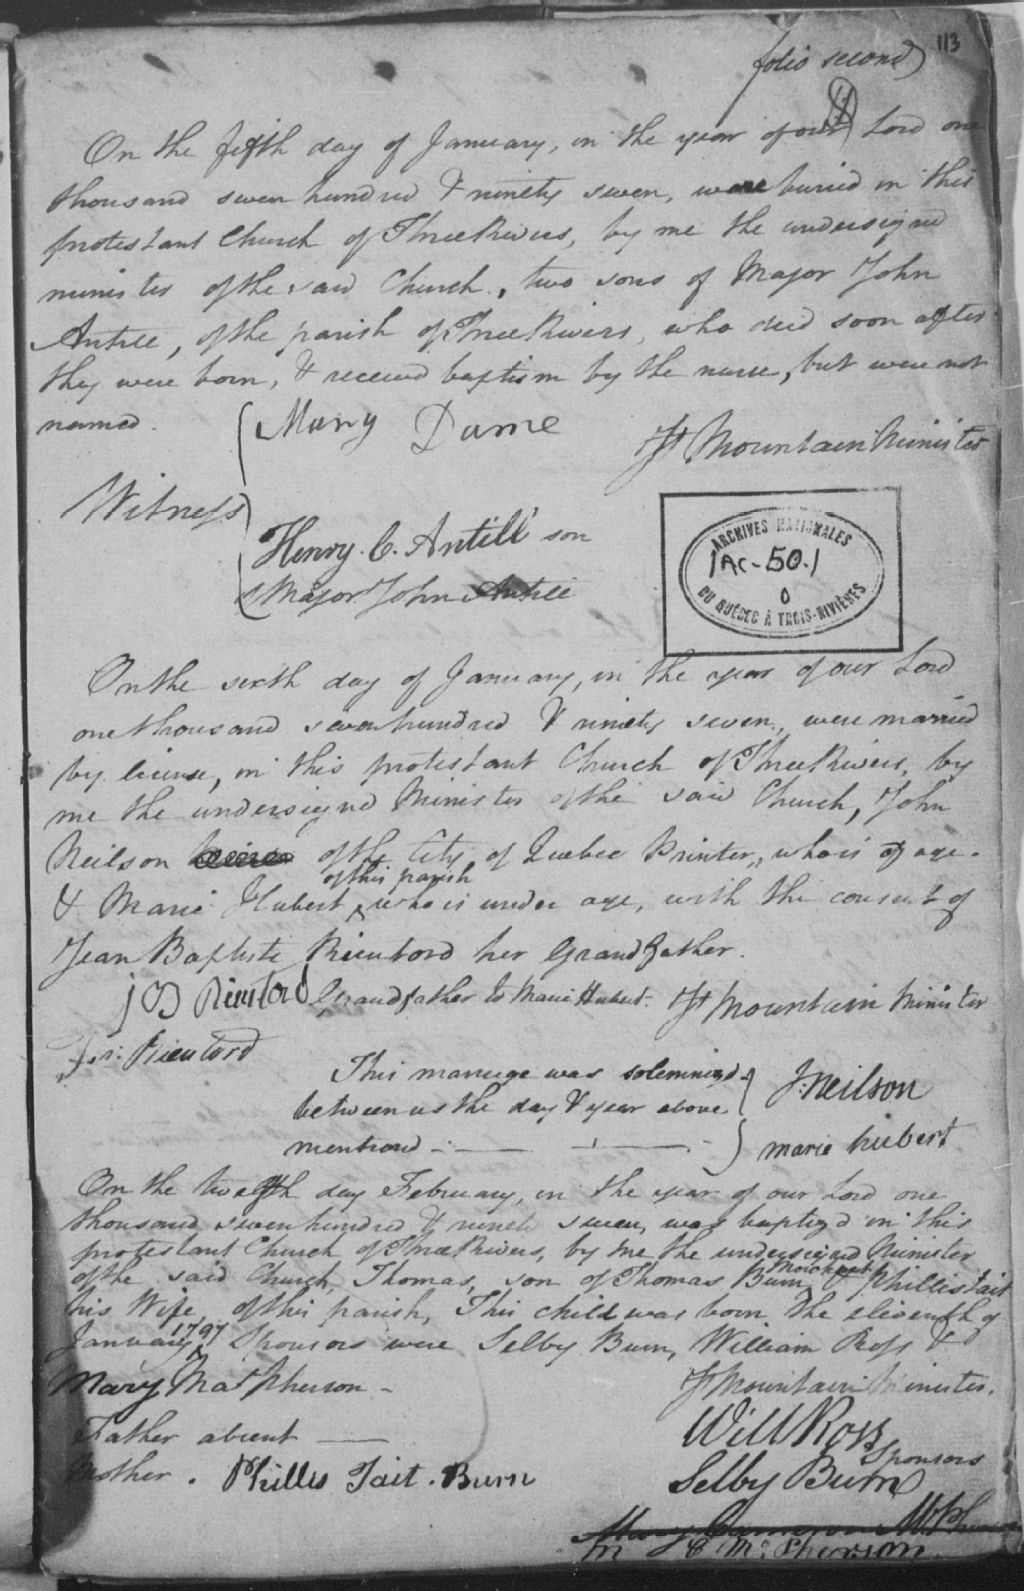 113
folio second
On the fifth day of January, in the year of our Lord one
thousand seven hundred & ninety seven, were buried in this
protestant Church of Three Rivers, by me the undersigned
minister of the said Church, two sons of Major John
Antill, of the parish of Three Rivers, who died soon after
they were born, & received baptism by the nurse, but were not
named.
Mary Dame
Jn Mountain Minister
Witness
Henry. C. Antill son
Major John Antill
ARCHIVES NATIONALES
AC-50.1
0
DU QUÉBEC À TROIS-RIVIÈRES
On the sixth day of January, in the year of our Lord
one thousand seven hundred & ninety seven, were married
by license, in this protestant Church of Three Rivers, by
me the undersigned Minister of the said Church, John
Neilson of the City of Quebec Printer, who is of age.
of this parish
& Marie Hubert, who is under age, with the consent of
Jean Baptiste Rieutord her Grandfather.
JB Rieutord Grandfather to Marie Hubert. Jn Mountain Minister
Rieutord
This marriage was solemnized
between us the day & year above
mentioned
J: Neilson
marie hubert
On the twelfth day February, in the year of our Lord one
thousand seven hundred & ninety seven, was baptized in this
protestant Church of Three Rivers, by me the undersigned Minister
Merchant
of the said Church, Thomas, son of Thomas Burn & Phillis Tait
his Wife, of this parish, This child was born the eleventh of
1797
January. Sponsors were Selby Burn, William Ross &
Mary MacPherson -
Jn Mountain Minister.
Father absent
Will Ross
Sponsors
Mother. Phillis Tait. Burn
Selby Burn
Mary Cameron McPherson
m C McPherson